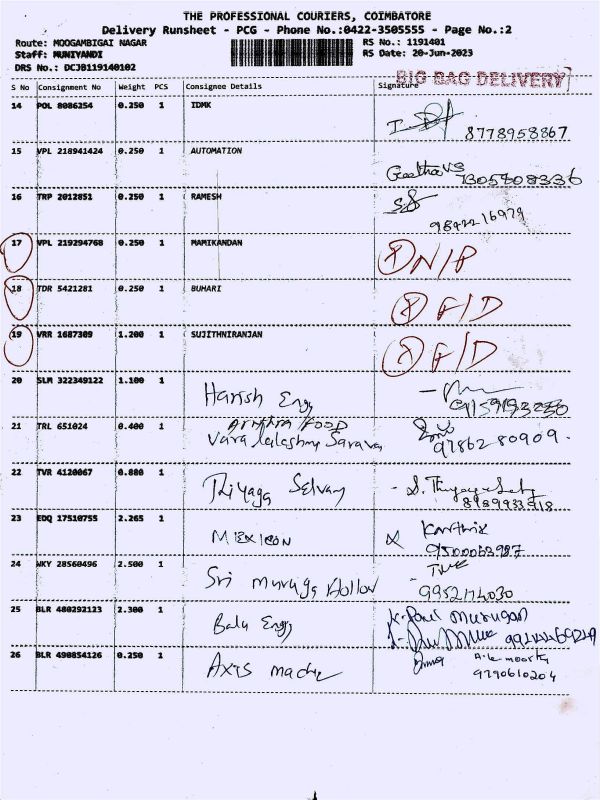 THE PROFESSIONAL COURIERS, COIMBATORE
Delivery Runsheet - PCG - Phone No.:0422-3505555 - Page No.:2
Route: MOOGAMBIGAI NAGAR RS No.: 1191401
Staff: MUNIYANDI RS Date: 20-Jun-2023
DRS No.: DCJB119140102
BIG BAG DELIVERY
S No Consignment No Weight PCS Consignee Details Signature
14 POL 8086254 0.250 1 IDMK
8778958867
15 VPL 218941424 0.250 1 AUTOMATION
Geetha VS 7305708336
16 TRP 2012851 0.250 1 RAMESH
9842216979
17 VPL 219294768 0.250 1 MAMIKANDAN
N/P
18 TDR 5421281 0.250 1 BUHARI
F/D
19 VRR 1687309 1.200 1 SUJITHNIRANJAN
F/D
20 SLM 322349122 1.100 1 Harish Engg
21 TRL 651024 0.400 1 FOOD
97862 80909.
22 TVR 4120067 0.880 1 Thiyaga Selvam
8189933918
23 EDQ 17510755 2.265 1 MEXICON Karthik
24 WKY 28560496 2.500 1 Sri Muruga Hollow
25 BLR 480292123 2.300 1 Balu Engg K. Paul Murugan
26 BLR 490854126 0.250 1 Axis
9790610204